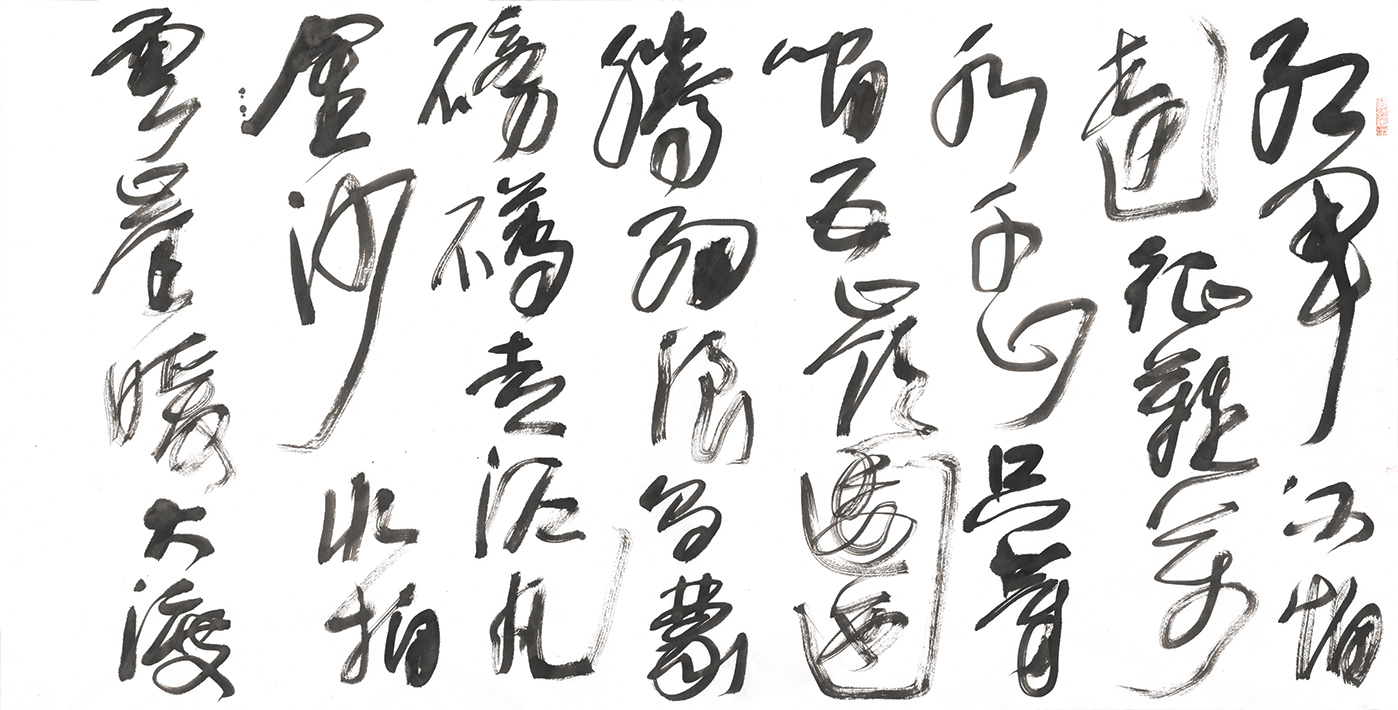 紅軍不怕
遠征難萬
水千山只等
閒五嶺逶迤
騰細浪烏蒙
磅礴走泥丸
金沙水拍
雲崖暖大渡